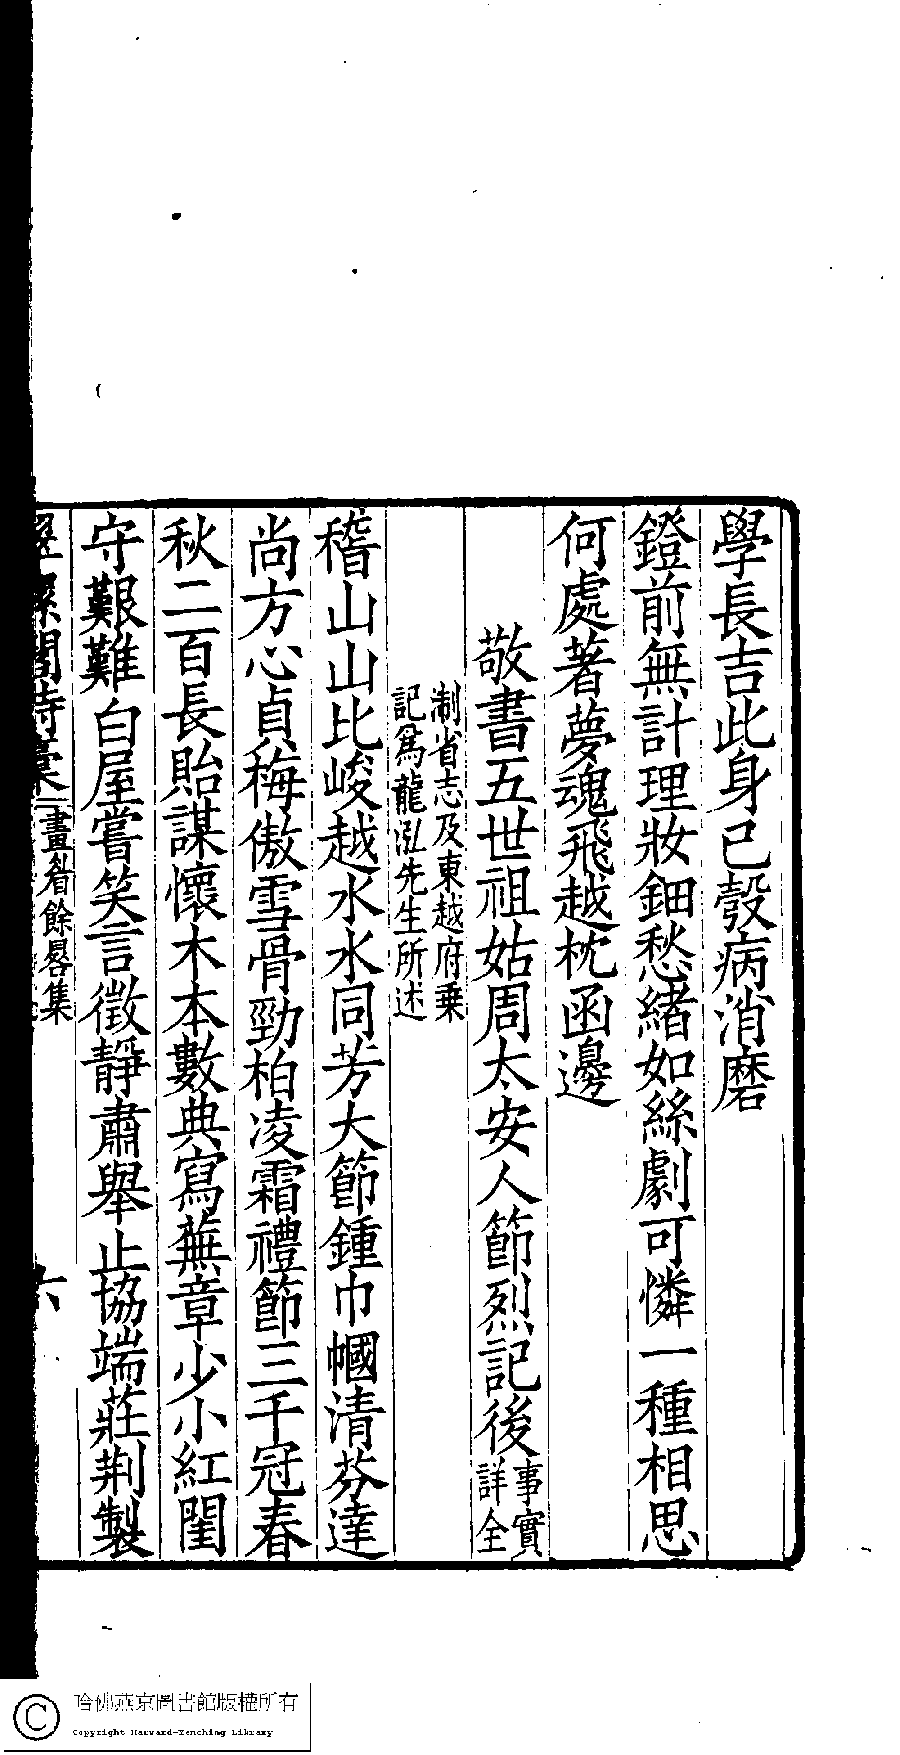 學長吉此身已彀病消磨
鐙前無計理妝鈿愁緒如絲劇可憐一種相思
何處著夢魂飛越枕函邊
敬書五世祖姑周太安人節烈記後事實詳全
制省志及東越府乗
記爲龍泓先生所述
稽山山比峻越水水同芳大節鍾巾幗清芬達
尚方心貞梅傲雪骨勁柏凌霜禮節三千冠春
秋二百長貽謀懷木本數典寫蕪章少小紅閨
守艱難白屋嘗笑言徵靜肅舉止協端莊荆製
閣詩稾一畫眉餘晷集
六
哈佛燕京圖書館版權所有
Copyright Harvard-Yenching Library